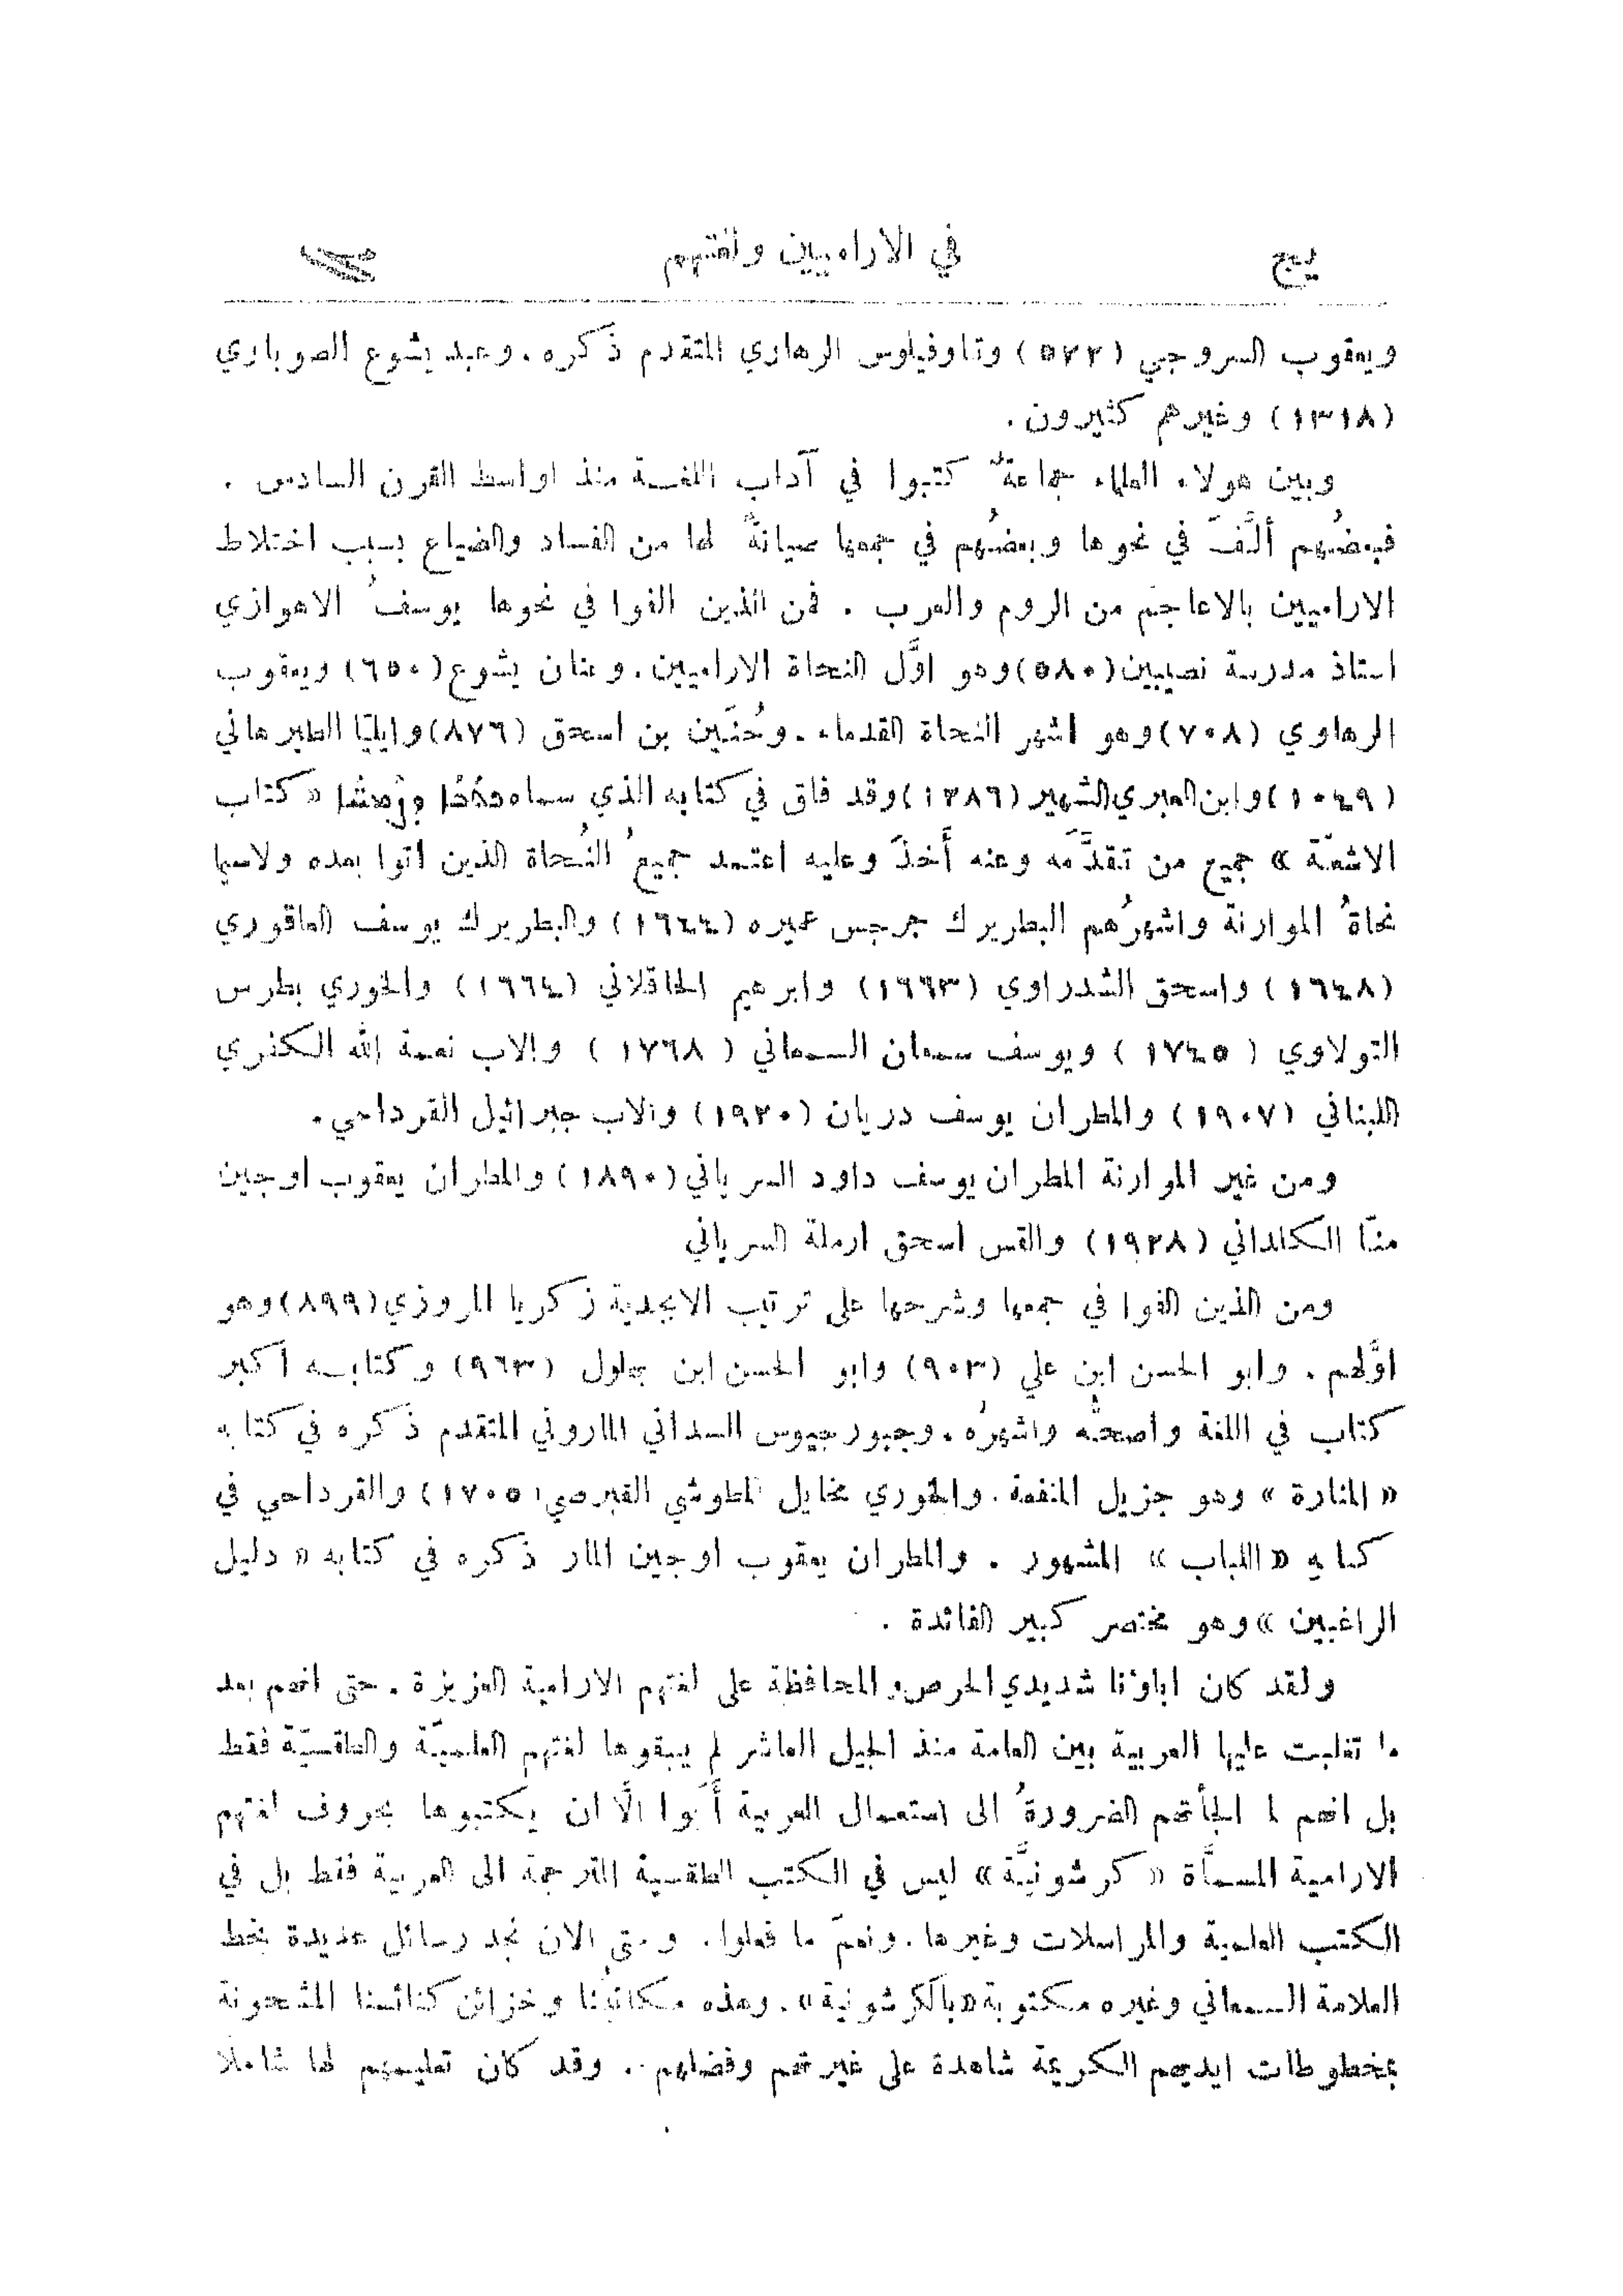 يج في الاراميين ولغتهم
ويعقوب السروجي (٥٧٢) وتاوفيلوس الرهاوي المتقدم ذكره. وعبد يشوع الصوباوي
(١٣١٨) وغيرهم كثيرون.
وبين هولاء العلماء جماعةٌ كتبوا في آداب اللغـة منذ اواسط القرن السادس .
فبعضُهم ألَّفَ في نحوها وبعضُهم في جمعها صيانةً لها من الفساد والضياع بسبب اختلاط
الاراميين بالاعاجم من الروم والعرب . فمن الذين الفوا في نحوها يوسفُ الاهوازي
استاذ مدرسة نصيبين (٥٨٠) وهو اوَّل النحاة الاراميين. وعنان يشوع (٦٥٠) ويعقوب
الرهاوي (٧٠٨) وهو اشهر النحاة القدماء. وحُنَين بن اسحق (٨٧٦) وايليّا الطيرهاني
(١٠٤٩) وابن العبري الشهير (١٢٨٦) وقد فاق في كتابه الذي سماه ܟܬܳܒܳܐ ܕܙܶܡ̈ܚܐ « كتاب
الاشعّة » جميع من تقدَّمه وعنه أَخذَ وعليه اعتمد جميعُ النُحاة الذين اتوا بعده ولاسيما
نحاةُ الموارنة واشهرُهم البطريرك جرجس عميره (١٦٤٤) والبطريرك يوسف العاقوري
(١٦٤٨) واسحق الشدراوي (١٦٦٣) وابرهيم الحاقلاني (١٦٦٤) والخوري بطرس
التولاوي (١٧٤٥) ويوسف سمعان السمعاني (١٧٦٨) والاب نعمة الله الكفري
اللبناني (١٩٠٧) والمطران يوسف دريان (١٩٢٠) والاب جبرائيل القرداحي.
ومن غير الموارنة المطران يوسف داود السرياني (١٨٩٠) والمطران يعقوب اوجين
منّا الكلداني (١٩٢٨) والقس اسحق ارملة السرياني
ومن الذين الفوا في جمعها وشرحها على ترتيب الابجدية زكريا المروزي (٨٩٩) وهو
اوَّلهم . وابو الحسن ابن علي (٩٠٣) وابو الحسن ابن بهلول (٩٦٣) وكتابـه اكبر
كتاب في اللغة واصحّه واشهرُه. وجيورجيوس السداني الماروني المتقدم ذكره في كتابه
« المنارة » وهو جزيل المنفعة. والخوري مخايل المطوشي القبرصي (١٧٠٥) والقرداحي في
كتابه « اللباب » المشهور . والمطران يعقوب اوجين المار ذكره في كتابه « دليل
الراغبين » وهو مختصر كبير الفائدة .
ولقد كان اباؤنا شديدي الحرص والمحافظة على لغتهم الارامية العزيزة . حتى انهم بعد
ما تغلبت عليها العربية بين العامة منذ الجيل العاشر لم يبقوها لغتهم العلميّة والطقسيّة فقط
بل انهم لما الجأتهم الضرورةُ الى استعمال العربية أَبوا الَّا ان يكتبوها بحروف لغتهم
الارامية المسمَّاة « كرشونيَّة » ليس في الكتب الطقسية المترجمة الى العربية فقط بل في
الكتب العلمية والمراسلات وغيرها. ونعمَ ما فعلوا. وحتى الان نجد رسائل عديدة بخط
العلامة السمعاني وغيره مكتوبة «بالكرشونية». وهذه مكاتبُنا وخزائن كنائسنا المشحونة
بمخطوطات ايديهم الكريمة شاهدة على غيرتهم وفضلهم . وقد كان تعليمهم لها شاملاً